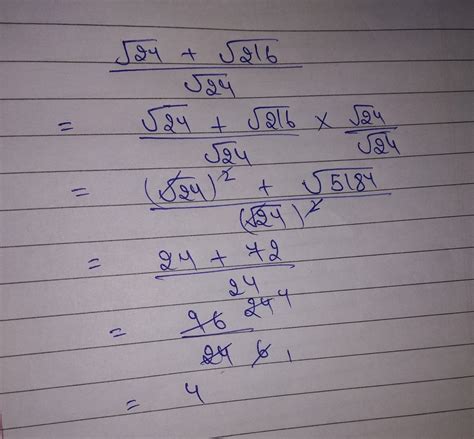 √24 + √216 / √24
= √24 + √216 / √24 × √24 / √24
= (√24)² + √5184 / (√24)²
= 24 + 72 / 24
= 96 24 4 / 24 6 1
= 4